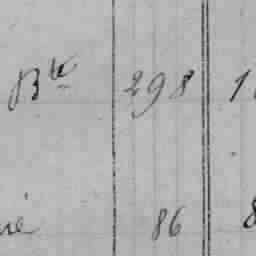 Bte 298 1
86 8